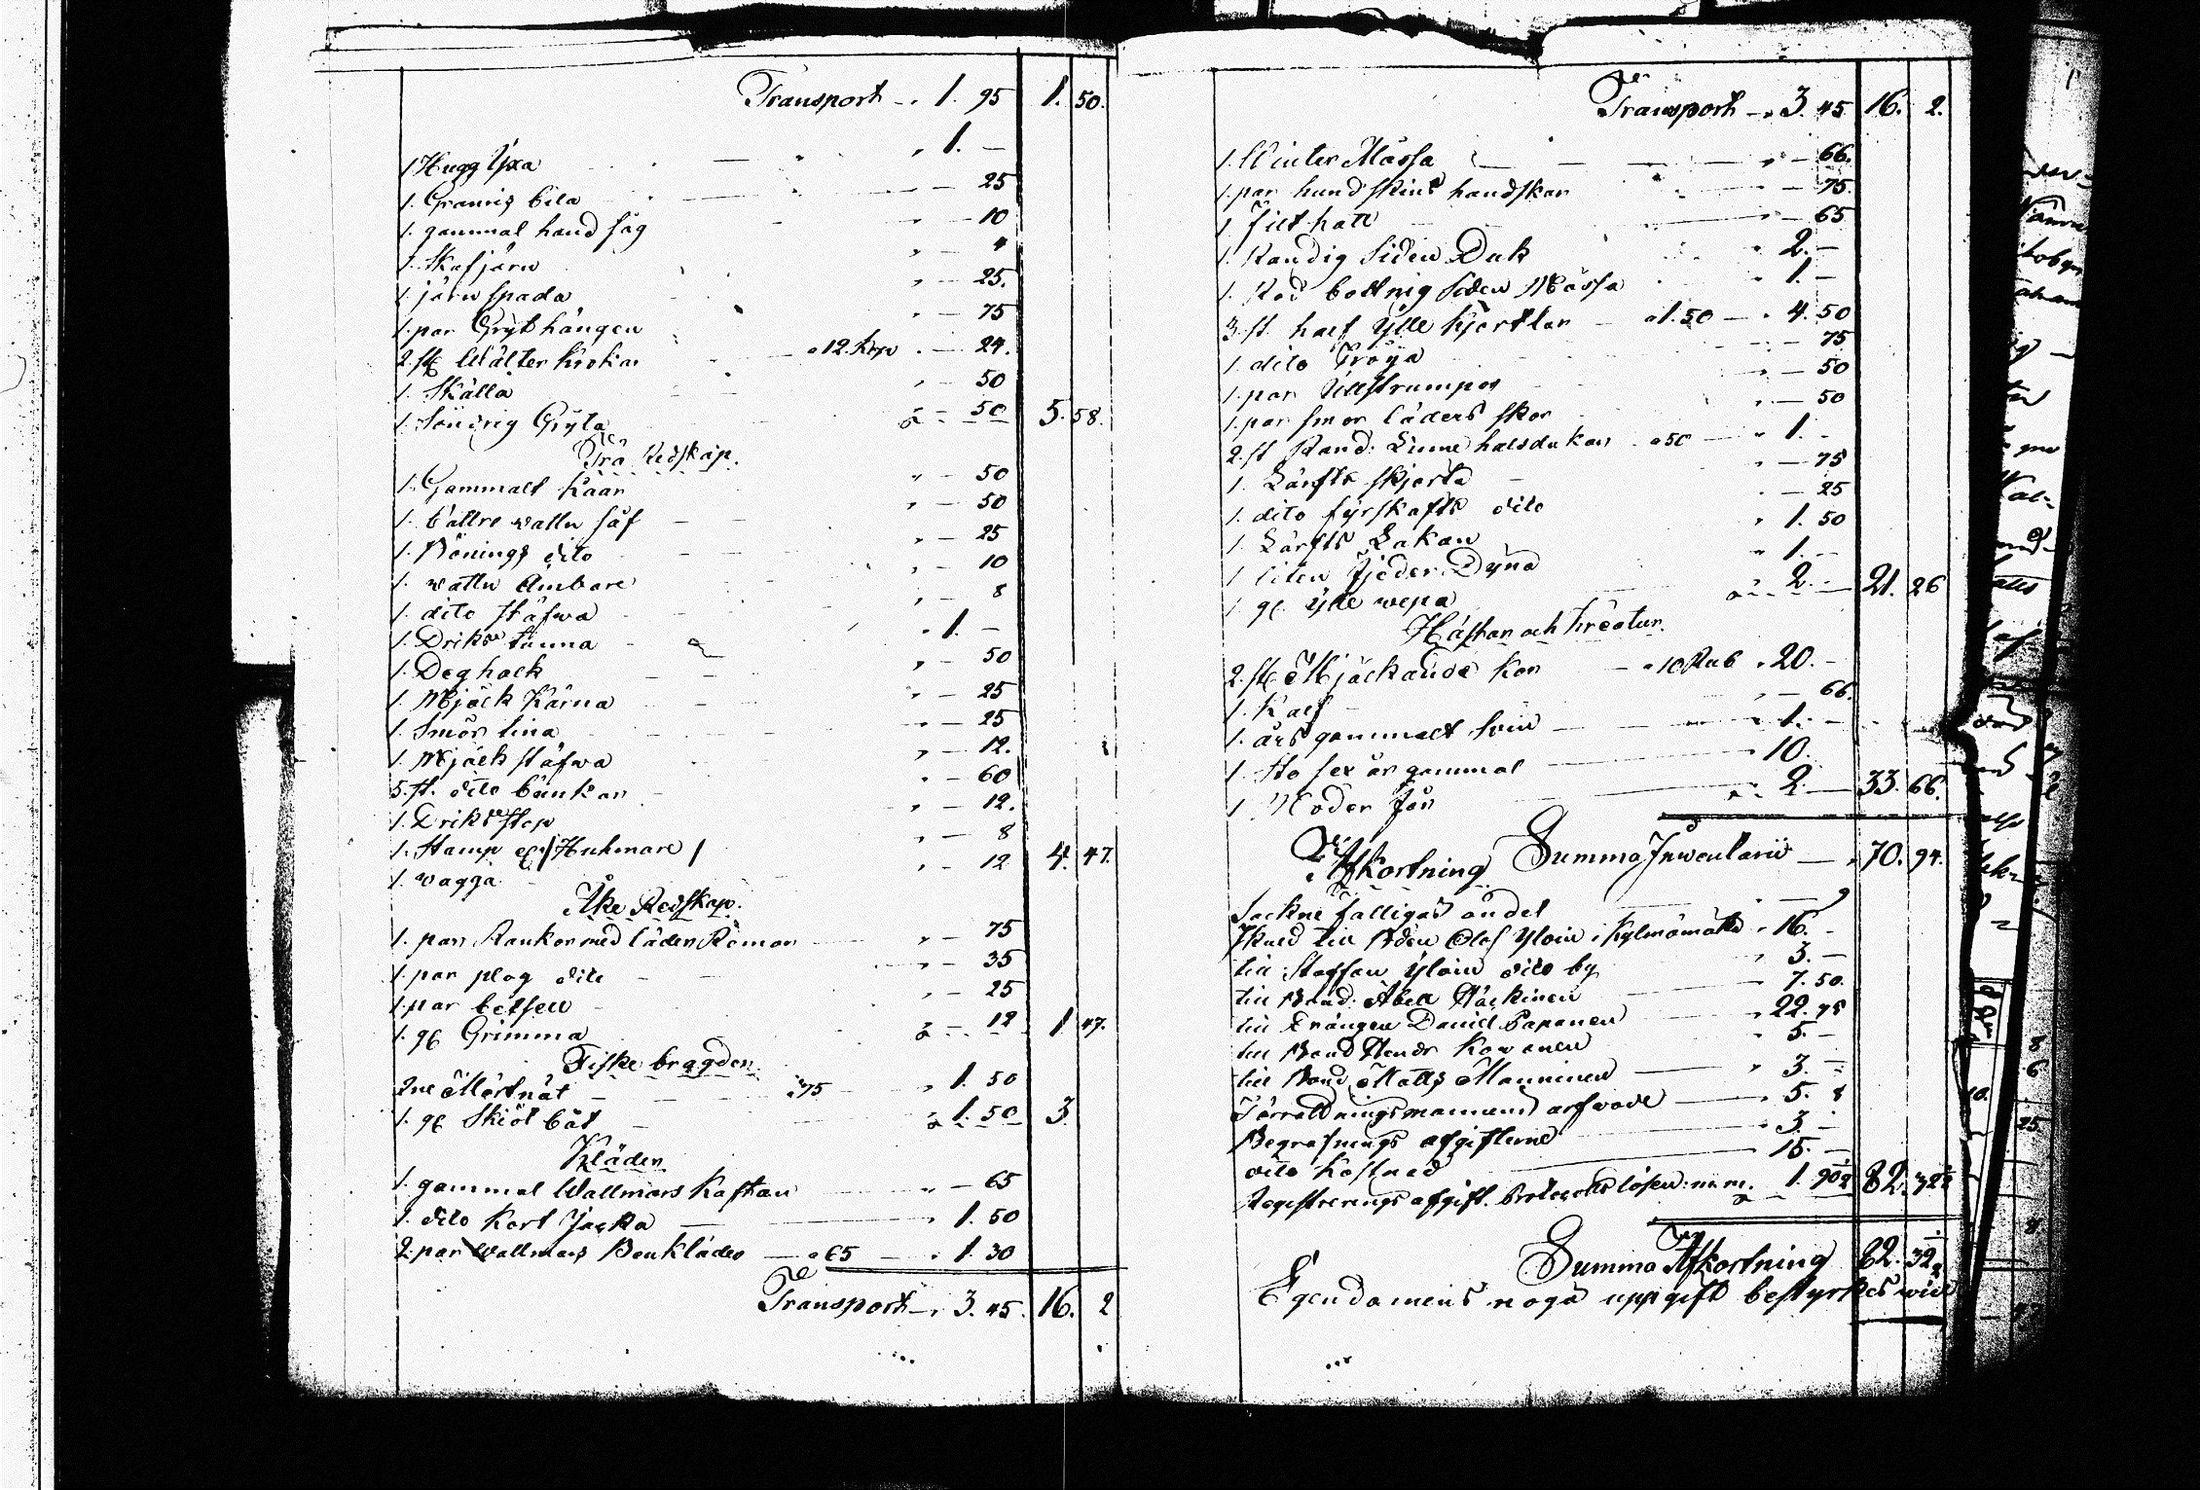 Transport – „ 1. 95 1. 50.
1 Hugg Yxa „ 1. –
1. Gramig bila „ – 25
1. gammal hand såg „ – 10
1. Skafjärn „ – 4
1. järn spada „ – 25.
1. par Gryt hängen „ – 75
2. st Wälter Krokar – a 12. kop „ – 24.
1. Skälla „ – 50
1. Söndrig Gryta „ – 50 5. 58.
Trä Redskap.
1. Gammalt Kaar „ – 50
1. bättre vattu så f – – „ – 50
1. Bönings dito „ – 25
1. vattu Ämbare „ – 10
1. dito stäfwa „ – 8
1. Driks tunna „ 1. –
1. Deghoek „ – 50
1. Mjölk Kärna „ – 25
1. Smör tina „ – 25
1. Mjölk stäfwa „ – 12.
5. st. dito bunkar „ – 60
1. Driks stop „ – 12.
1. Stamp /Huhmare/ „ – 8
1. vagga „ – 12 4. 47.
Åke Redskap.
1. par Rankor med läder Remar „ – 75
1 par plog dito „ – 35
1. par betsell „ – 25
1. gl Grimma „ – 12 1 47.
Fiske bragder.
2ne Mörtnät – a 75 „ 1. 50
1. gl Skiöt båt „ 1. 50 3.
Kläder
1. gammal Wallmars Kaftan „ – 65
1. dito kort Jacka „ 1. 50
2. par Wallmars Benkläder – a 65 – „ 1. 30
Transport – „ 3. 45. 16. 2
Transport – „ 3. 45 16. 2.
1. Winter Mössa „ – 66.
1. par hundskins handskar „ – 75.
1 Filt hatt „ – 65
1. Randig Siden Duk „ 2. –
1. Röd bottnig Siden Mössa „ 1. –
3. st. half Ylle Kjortlar – a 1. 50 – „ 4. 50
1. dito Tröya „ – 75
1. par Ullstrumpor „ – 50
1. par smor läders skor „ – 50
2. st Rand. Linne halsdukar a 50 – „ 1. –
1. Lärfts skjorta „ – 75
1. dito fyrskafts dito „ – 25
1. Lärfts Lakan „ 1. 50
1 liten Fjeder Dyna „ 1. –
1. gl. Ylle wepa „ 2. – 21. 26
Hästar och kreatur.
2. st Mjölkande Kor – a 10 Rub „ 20. –
1. Kalf „ – 66.
1. års gammalt svin „ 1. –
1. Sto sex år gammal „ 10.
1. Moder får „ 2. – 33. 66.
Summa Inventarii – „ 70. 94.
Afkortning
Sockne fattigas andel –
Skuld till Bden Olof Yloin i Kylmämäki „ 16. –
till Staffan Yloin dito by „ 3. –
till Bond. Abell Häckinen „ 7. 50.
till Drängen David Papanen „ 22. 75
till Bond Hendr Kowanen „ 5. –
till Bond Matts Manninen „ 3. –
Förrättningsmannens arfvode „ 5. 8
Begrafnings afgifterne „ 3. –
dito kostnad „ 15. –
Registrerings afgift. Protocolls lösen m.m. „ 1. 90½ 82. 32½
Summa Afkortning 82. 32½
Egendomens noga uppgift bestyrkes wid